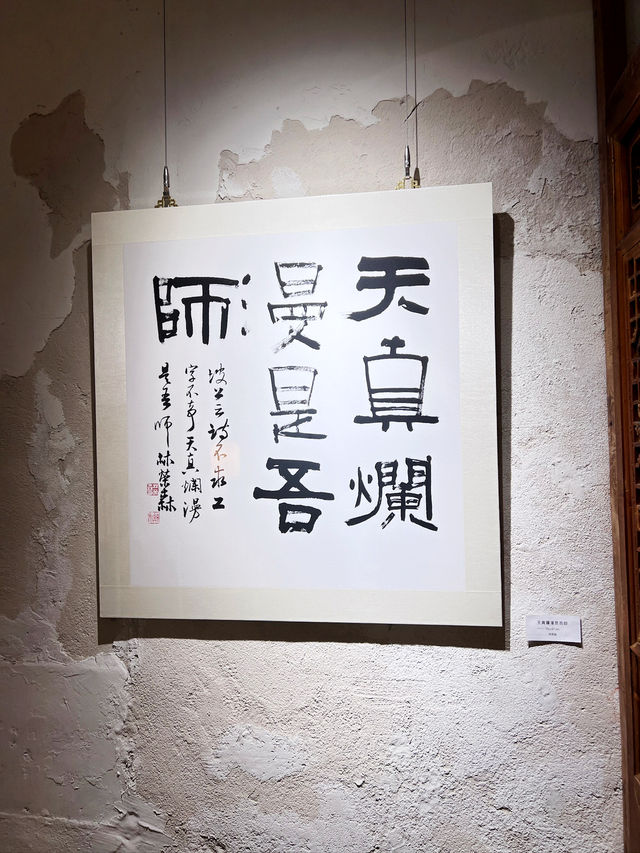 天真爛
漫是吾
師
坡公云詩不求工
字不奇天真爛漫
是吾師 林榮森
天真爛漫是吾師